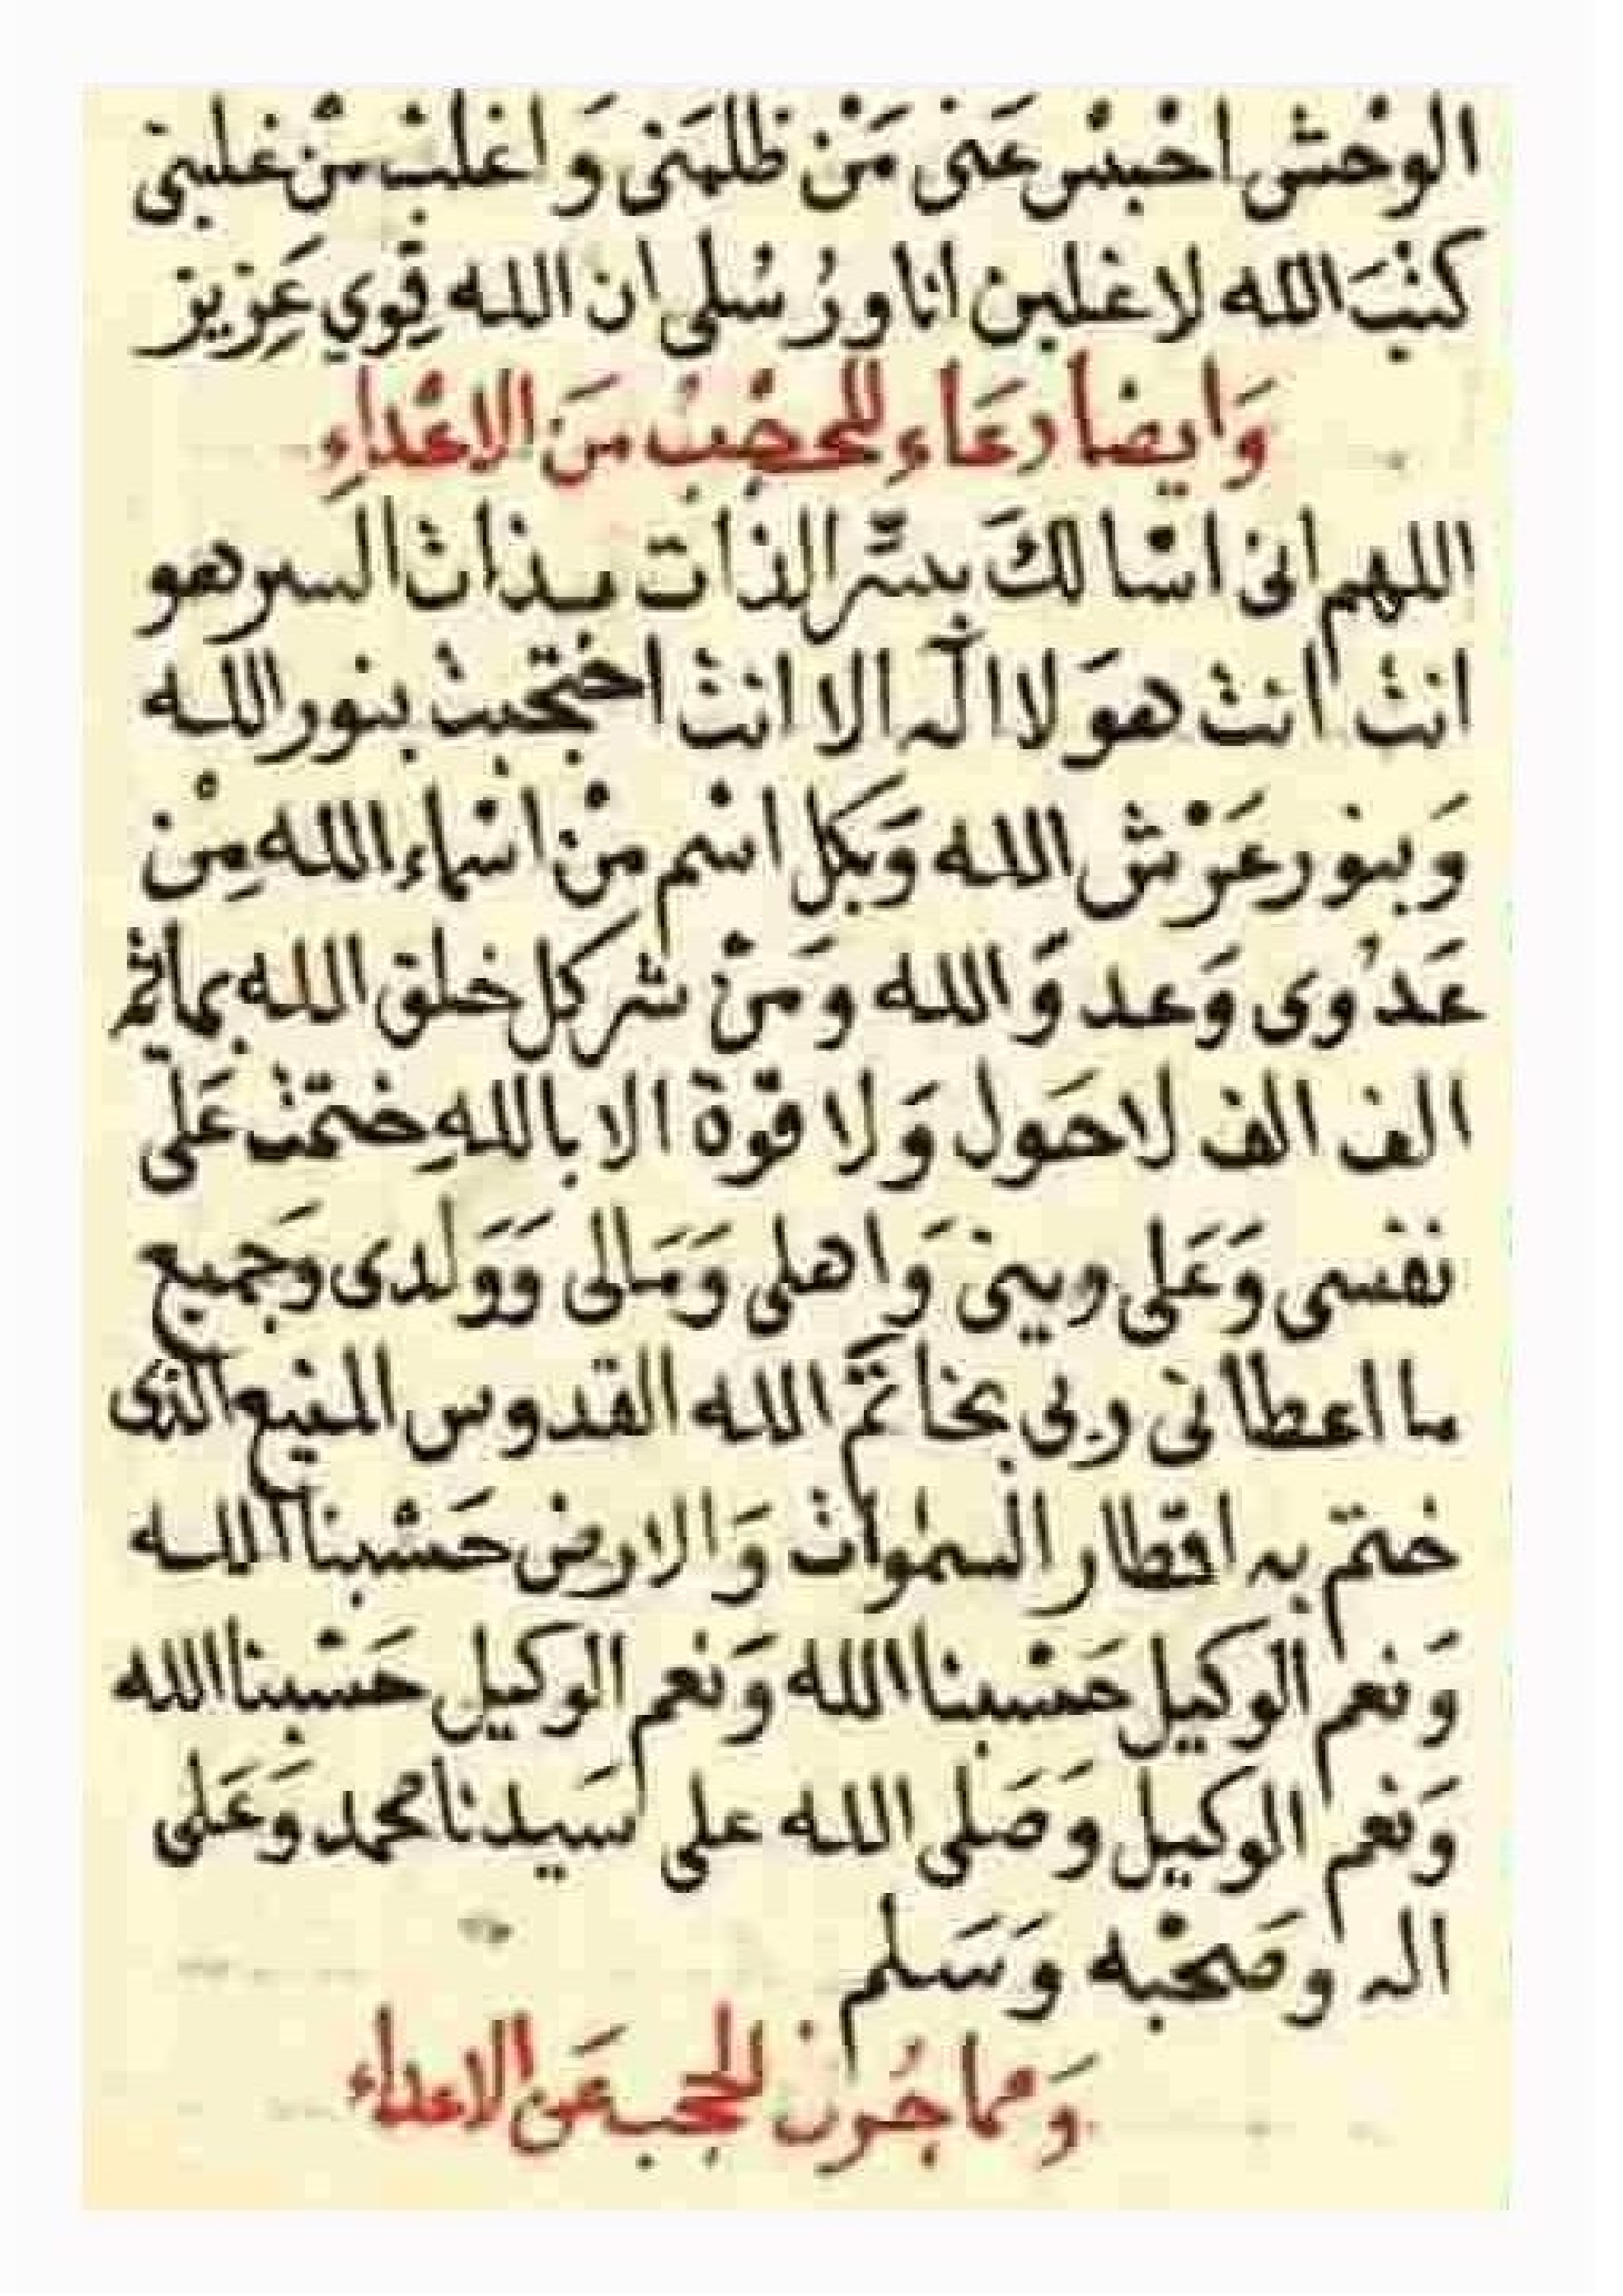 الوحْش احْبسْ عَنى مَنْ ظلمَنى وَ اغلبْ منْ غلبنى
كتبَ الله لاغلبن انا ورُسُلى ان الله قِوي عَزِيز
وَايضا دعَاءِ للحجْبُ مَن الاعْداءِ
اللهم انى اسْالكَ بسّر الذات بذات السر هو
انت انت هوَ لا الٓه الا انت احتجبت بنور الله
وَبنور عَرْش الله وَبكل اسْم منْ اسْماء الله مِنْ
عَدُوى وَعدوَ الله ومَنْ شر كل خلق الله بماتة
الف الف لاحَول وَلا قوّة الا باللهِ ختمت عَلى
نفسى وَعَلى دينى وَاهلى وَمَالى وَوَلدى وَجميع
ما اعطانى ربى بخاتَم الله القدوس المنيع الذى
ختم به اقطار السموات وَالارض حَسْبنا الله
وَنعم الوكيل حَسْبنا الله وَنعم الوكيل حَسْبنا الله
وَنعم الوكيل وَصَلى الله على سَيدنا محمد وَعَلى
اله وصَحْبه وَسَلم
وَمما جُربَ للحجب عَن الاعداء